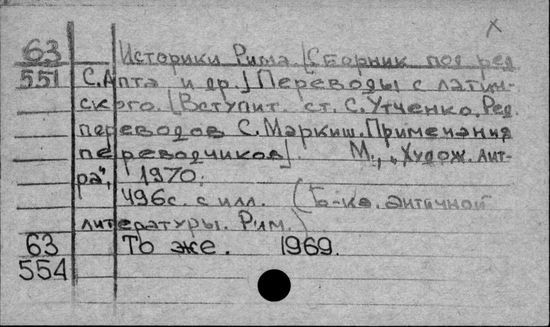 х
63 Историки Рима. [Сборник под ред.
551 С. Апта и др.] Переводы с латин-
ского. [Вступит. ст. С. Утченко. Ред.
переводов С. Маркиш. Примечания
переводчиков]. М., „Худож. лит-
ра", 1970.
496с. с илл. (Б-ка античной
литературы. Рим.)
63 То же. 1969.
554